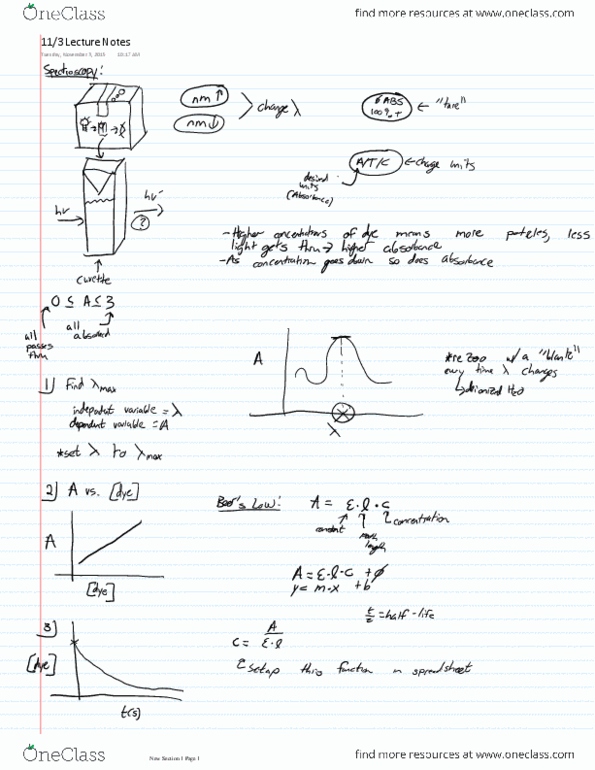 OneClass
find more resources at www.oneclass.com
11/3 Lecture Notes
Tuesday, November 3, 2015 10:17 AM
Spectroscopy:
nm ↑
nm ↓
change λ
0 ABS
100% T
← "tare"
A/T/C
← change units
desired
units
(Absorbance)
hν
hν
?
cuvette
- Higher concentrations of dye means more particles, less
light gets thru → higher absorbance
- As concentration goes down so does absorbance
0 ≤ A ≤ 3
all
passes
thru
all
absorbed
1) Find λmax
independent variable = λ
dependent variable = A
*set λ to λmax
A
λ
*re zero w/ a "blank"
every time λ changes
deionized H2O
2) A vs. [dye]
A
[dye]
Beer's Law:
A = ε·l·c
constant
path
length
concentration
A = ε·l·c + ϕ
y = m·x + b
3)
[dye]
t(s)
t/2 = half-life
c = A/ε·l
setup this function in spreadsheet
OneClass
New Section 1 Page 1
find more resources at www.oneclass.com